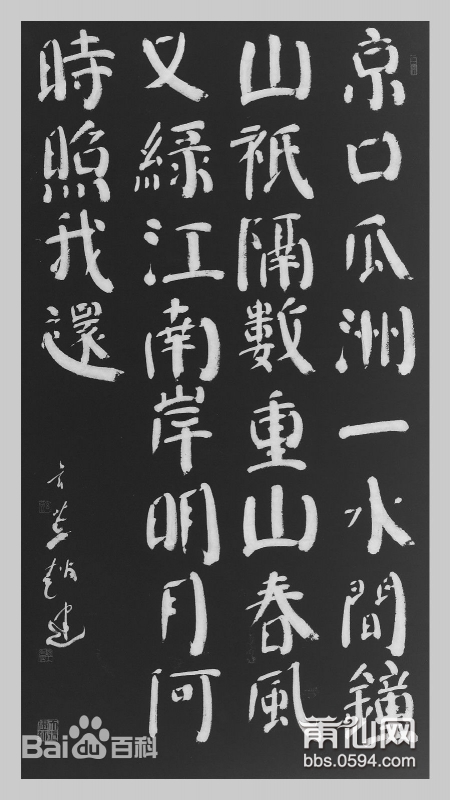 京口瓜洲一水間鐘
山祇隔數重山春風
又綠江南岸明月何
時照我還
Bai百科
莆仙网
bbs.0594.com